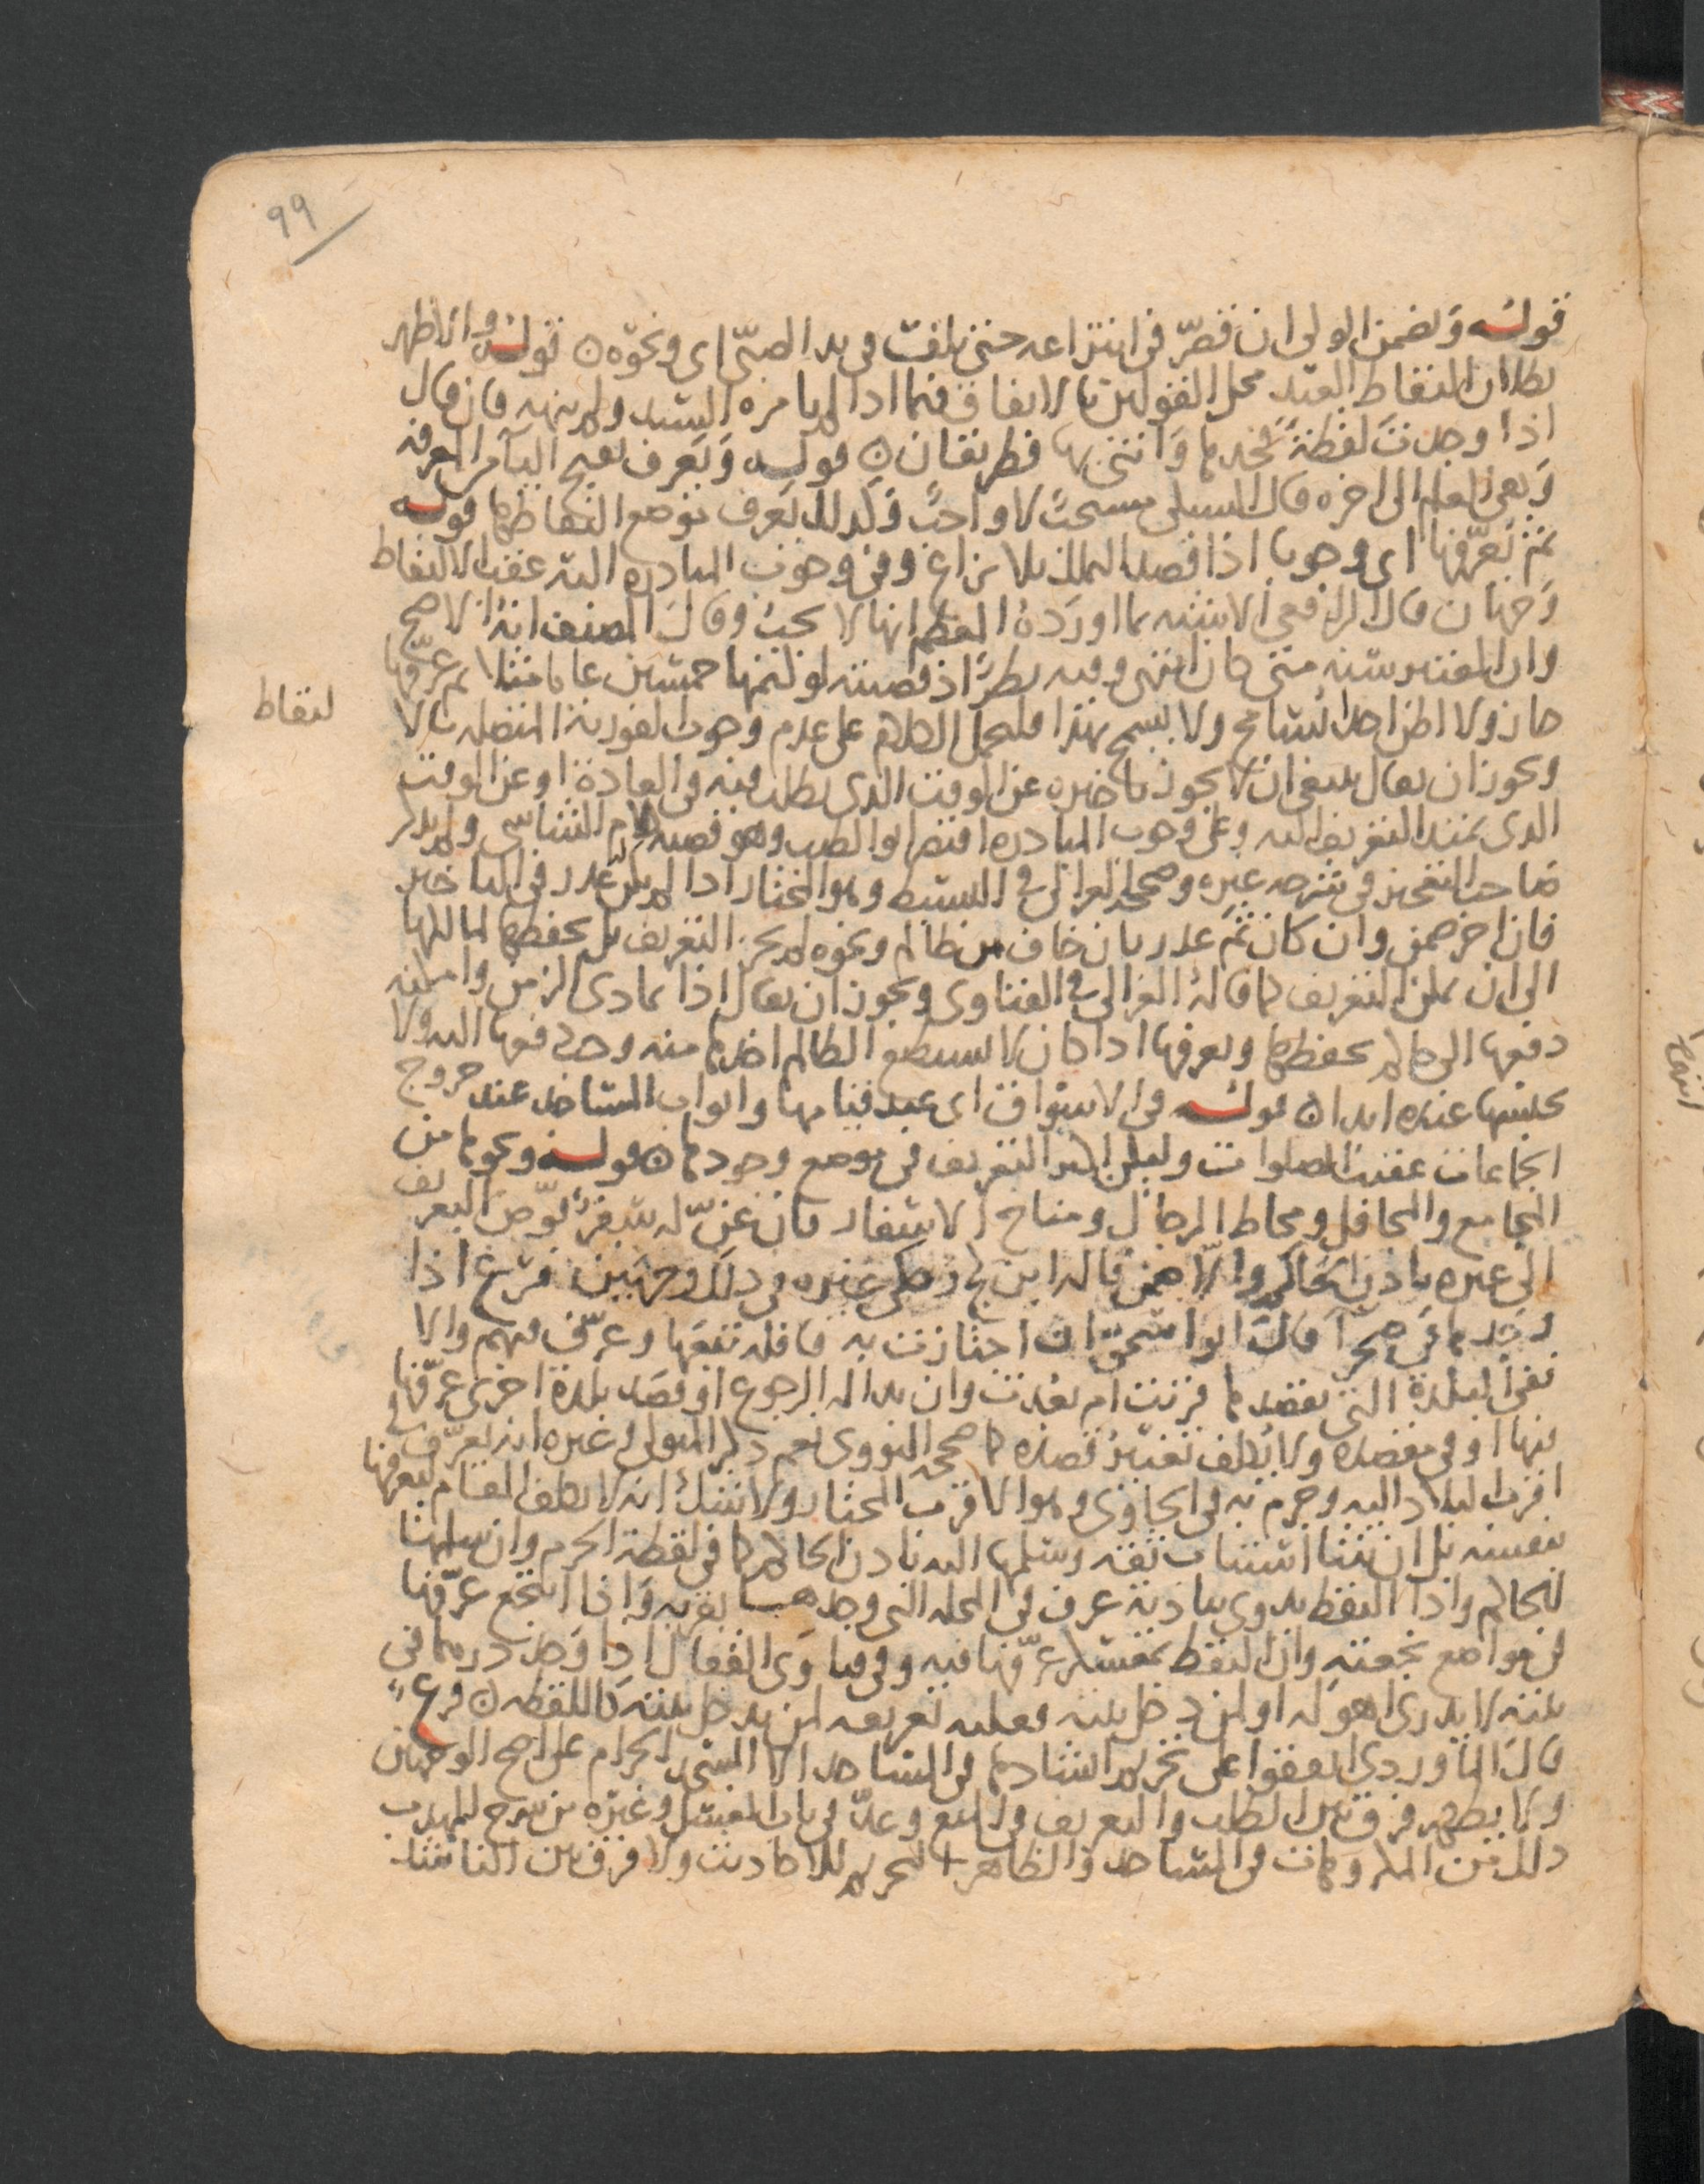 ٩٩
قوله ويضمن الولي ان قصّر في انتزاعه حتى تلفت في يد الصبيّ اي ونحوه ن قوله والاظهر
بطلان التقاط العبد محل القولين بالاتفاق فيما اذا لم يامره السيد ولم ينهه فان قال
اذا وجدت لقطة فخذها وائتني بها فطريقان ن قوله ويعرف بفتح اليآ من المعرفه
وهي العلم الى اخره قال السبكي مستحبّ لا واجبٌ وكذلك يعرف موضع التقاطها قوله
ثم يعرّفها اي وجوبا اذا قصد التملك بلا نزاع وفي وجوب المبادره اليه عقب الالتقاط
وجهان قال الرافعي الاشبه بما اورده المعظم انها لا تجب وقال المصنف انه الاصح
وان المعتبر سنه متى كان انتهى وفيه نظرٌ اذ قضيته لو كتمها خمسين عاما مثلا ثم عرّفها
جاز ولا اظن احدا يسامح ولا يسمح بهذا فليحمل الكلام على عدم وجوب الفوريه المتصله بالا
لتقاط
ويجوز ان يقال ينبغي ان لا يجوز تاخيره عن الوقت الذي يطلب فيه في العاده او عن الوقت
الذي يمتد التعريف اليه وعلى وجوب المبادره اقتصر ابو الطيب وهو قضيه كلام الشاشي ولم يذكر
صاحب التعجيز في شرحه غيره وصححه الغزالي في البسيط وهو المختار اذا لم يكن عذر في التاخير
فان اخر ضمن وان كان ثمّ عذر بان خاف من ظالم ونحوه لم يجز التعريف بل يحفظها لمالكها
الى ان يمكن التعريف كما قاله الغزالي في الفتاوى ويجوز ان يقال اذا تمادى الزمن وامكنه
دفعها الى حاكم يحفظها ويعرفها اذا كان لا يستطيع الظالم اخذها منه وجب دفعها اليه ولا
يحبسها عنده ابدا ن قوله في الاسواق اي عند قيامها وابواب المساجد عند خروج
الجماعات عقب الصلوات وليكن اكثر التعريف في موضع وجودها ن قوله ونحوها من
المجامع والمحافل ومحاط الرحال ومناخ الاسفار فان عنّ له سفرٌ فوّض التعريف
الى غيره باذن الحاكم والا ضمن قاله ابن كج وحكى غيره في ذلك وجهين فرع اذا
وجدها في صحرآ قال ابو اسحق ان اجتازت به قافله تبعها وعرّف فيهم والا
ففي البلدة التي يقصدها قربت ام بعدت وان بدا له الرجوع او قصد بلدة اخرى عرّفها
فيها او في مقصده ولا يكلف تغيير قصده كما صححه النووي نعم ذكر المتولي وغيره انه يعرّف في
اقرب البلاد اليه وجزم به في الحاوي وهو الاقرب المختار ولا شك انه لا يكلف المقام ليعرفها
بنفسه بل ان شا استناب ثقة وسلمها اليه باذن الحاكم كما في لقطة الحرم وان سلمها
للحاكم واذا التقط بدوي ببادية عرف في المحله التي وجدها بقربه واذا انتجع عرّفها
في مواضع نجعته وان التقط بمفسلا عرّفها فيه وفي فتاوي القفال اذا وجد درهما في
بيته لا يدري اهو له او لمن دخل بيته فعليه تعريفه لمن يدخل بيته كاللقطه ن فرع
قال الماوردي اتفقوا على تحريم انشادها في المساجد الا المسجد الحرام على اصح الوجهين
ولا يظهر فرق بين الطلب والتعريف في المنع وعدّ في باب الغسل وغيره من شرح المهذب
ذلك من المكروهات في المساجد والظاهر التحريم للاحاديث ولا فرق بين الناشد